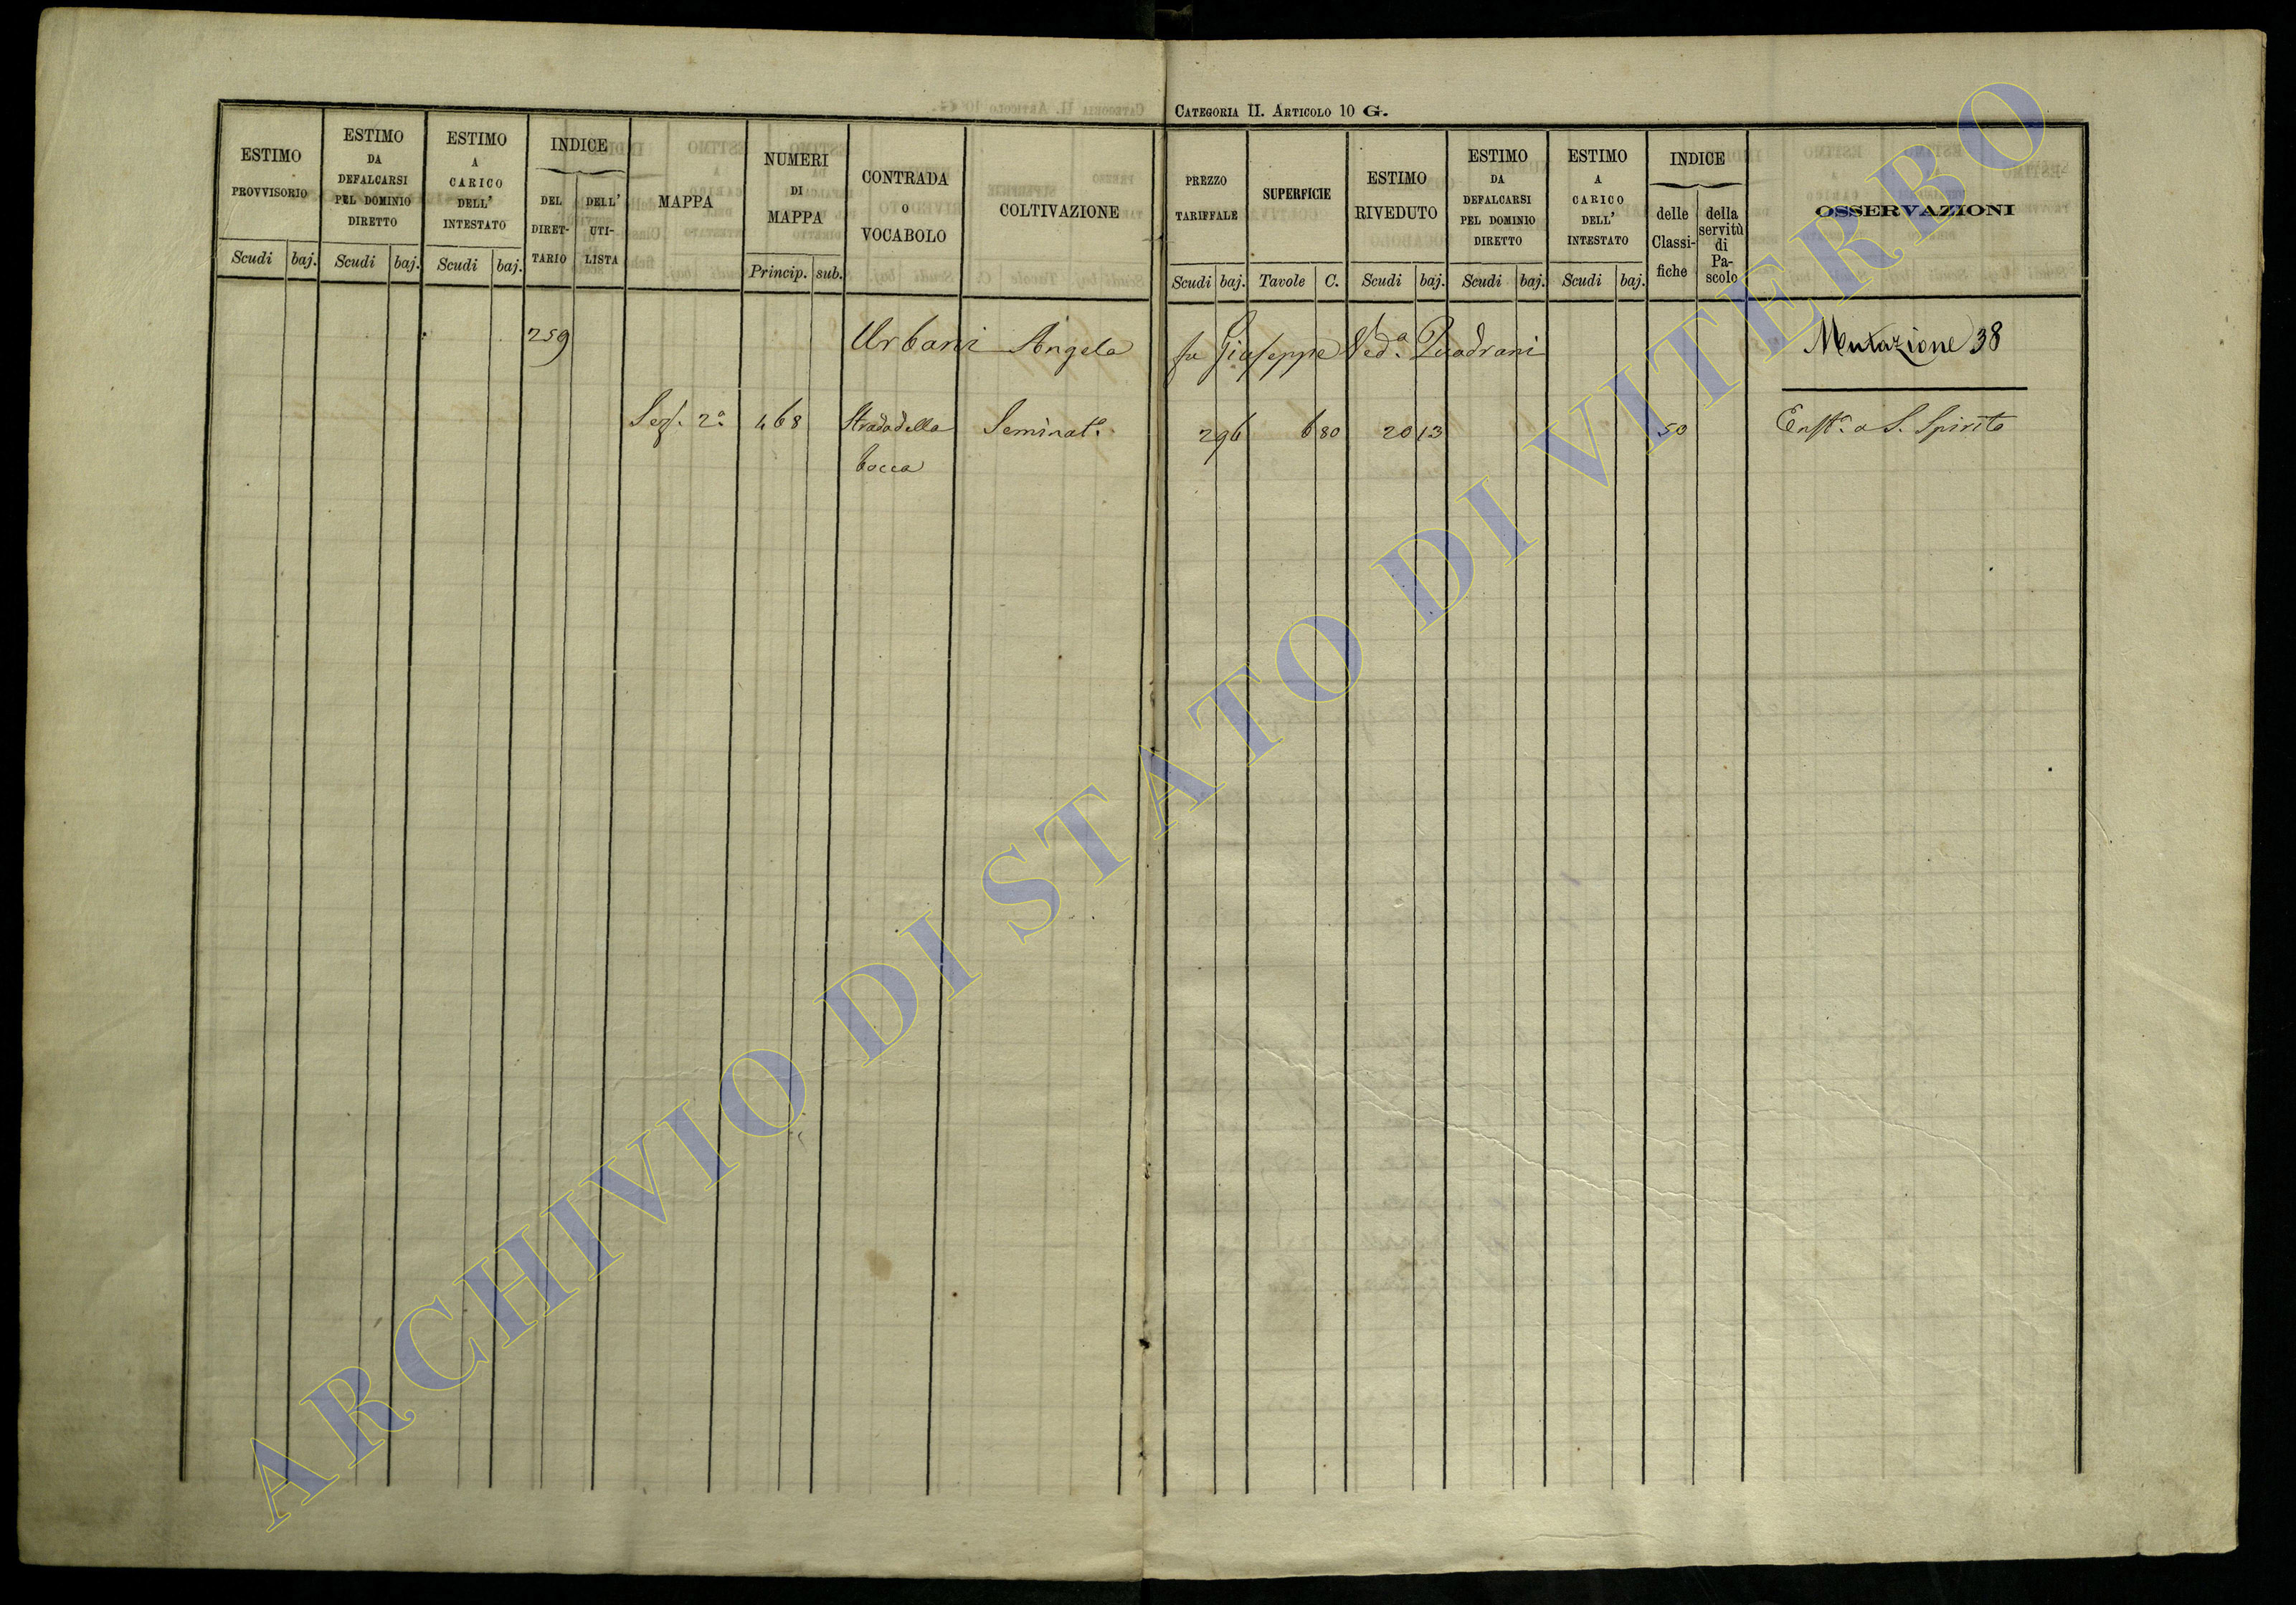 CATEGORIA II. ARTICOLO 10 G.
ESTIMO PROVVISORIO
Scudi baj.
ESTIMO DA DEFALCARSI PEL DOMINIO DIRETTO
Scudi baj.
ESTIMO A CARICO DELL' INTESTATO
Scudi baj.
INDICE
DEL DIRET-TARIO
DELL' UTI-LISTA
MAPPA
NUMERI DI MAPPA
Princip. sub.
CONTRADA O VOCABOLO
COLTIVAZIONE
PREZZO TARIFFALE
Scudi baj.
SUPERFICIE
Tavole C.
ESTIMO RIVEDUTO
Scudi baj.
ESTIMO DA DEFALCARSI PEL DOMINIO DIRETTO
Scudi baj.
ESTIMO A CARICO DELL' INTESTATO
Scudi baj.
INDICE
delle Classi-fiche
della servitù di Pa-scolo
OSSERVAZIONI
259 Urbani Angela fu Giuseppe Ved.ª Quadrani Mutazione 38
Sez. 2ª 468 Strada della Seminat.º 2 96 6 80 20 13 50 Enft.ª a S. Spirito
bocca
ARCHIVIO DI STATO DI VITERBO